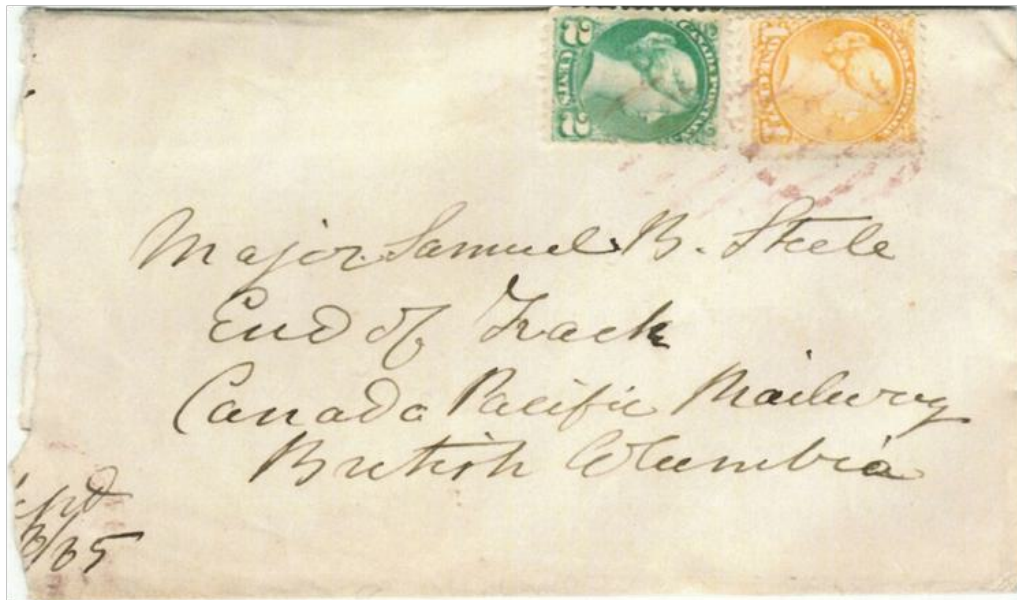 2 CENTS 2
CANADA POSTAGE
1 ONE CENT 1
CANADA POSTAGE
Major Samuel B. Steele
End of Track
Canada Pacific Railway
British Columbia
/85